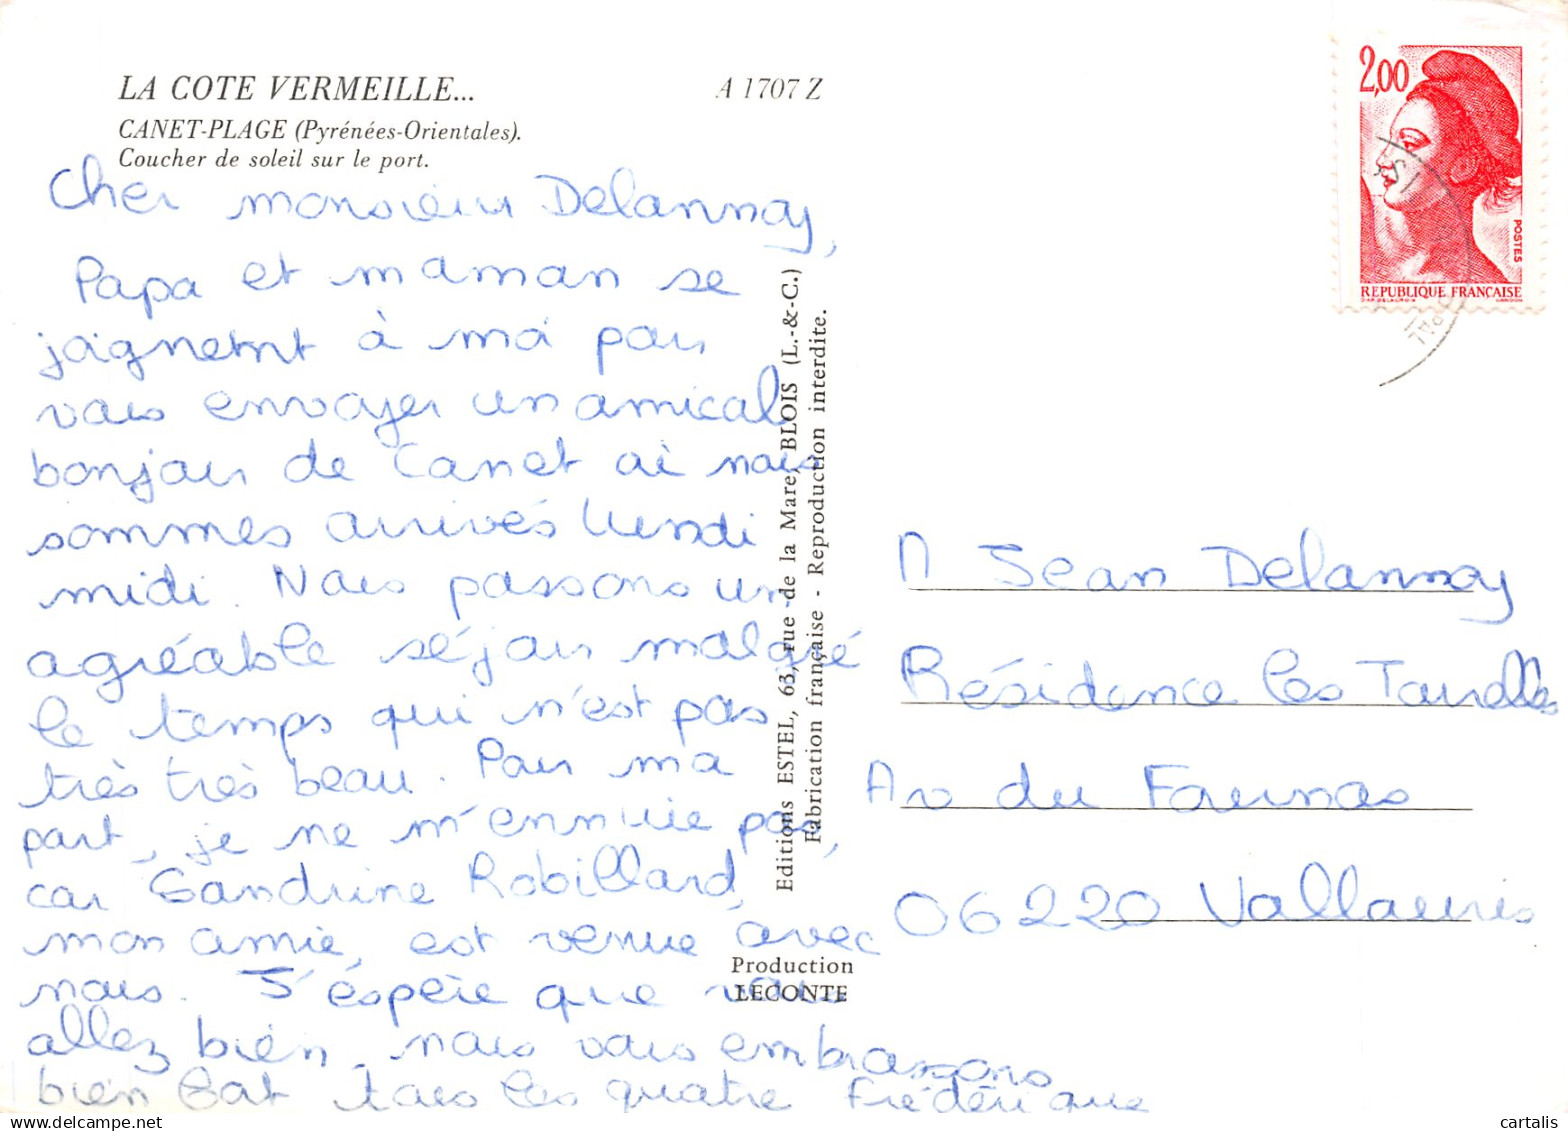 LA COTE VERMEILLE...
A 1707 Z
CANET-PLAGE (Pyrénées-Orientales).
Coucher de soleil sur le port.
Cher monsieur Delannoy,
Papa et maman se
joignent à moi pour
vous envoyer un amical
bonjour de Canet où nous
sommes arrivés lundi
midi. Nous passons un
agréable séjour malgré
le temps qui n'est pas
très très beau. Pour ma
part, je ne m'ennuie pas,
car Sandrine Robillard,
mon amie, est venue avec
nous. J'éspère que vous
allez bien, nous vous embrassons
bien fort tous les quatre Frédérique
Editions ESTEL, 63, rue de la Mare, BLOIS (L.-&-C.)
Fabrication française - Reproduction interdite.
Production
LECONTE
2,00
POSTES
REPUBLIQUE FRANÇAISE
D'AP. DELACROIX GANDON
M Jean Delannoy
Résidence les Tourelles
Av du
06220 Vallauris
delcampe.net
cartalis